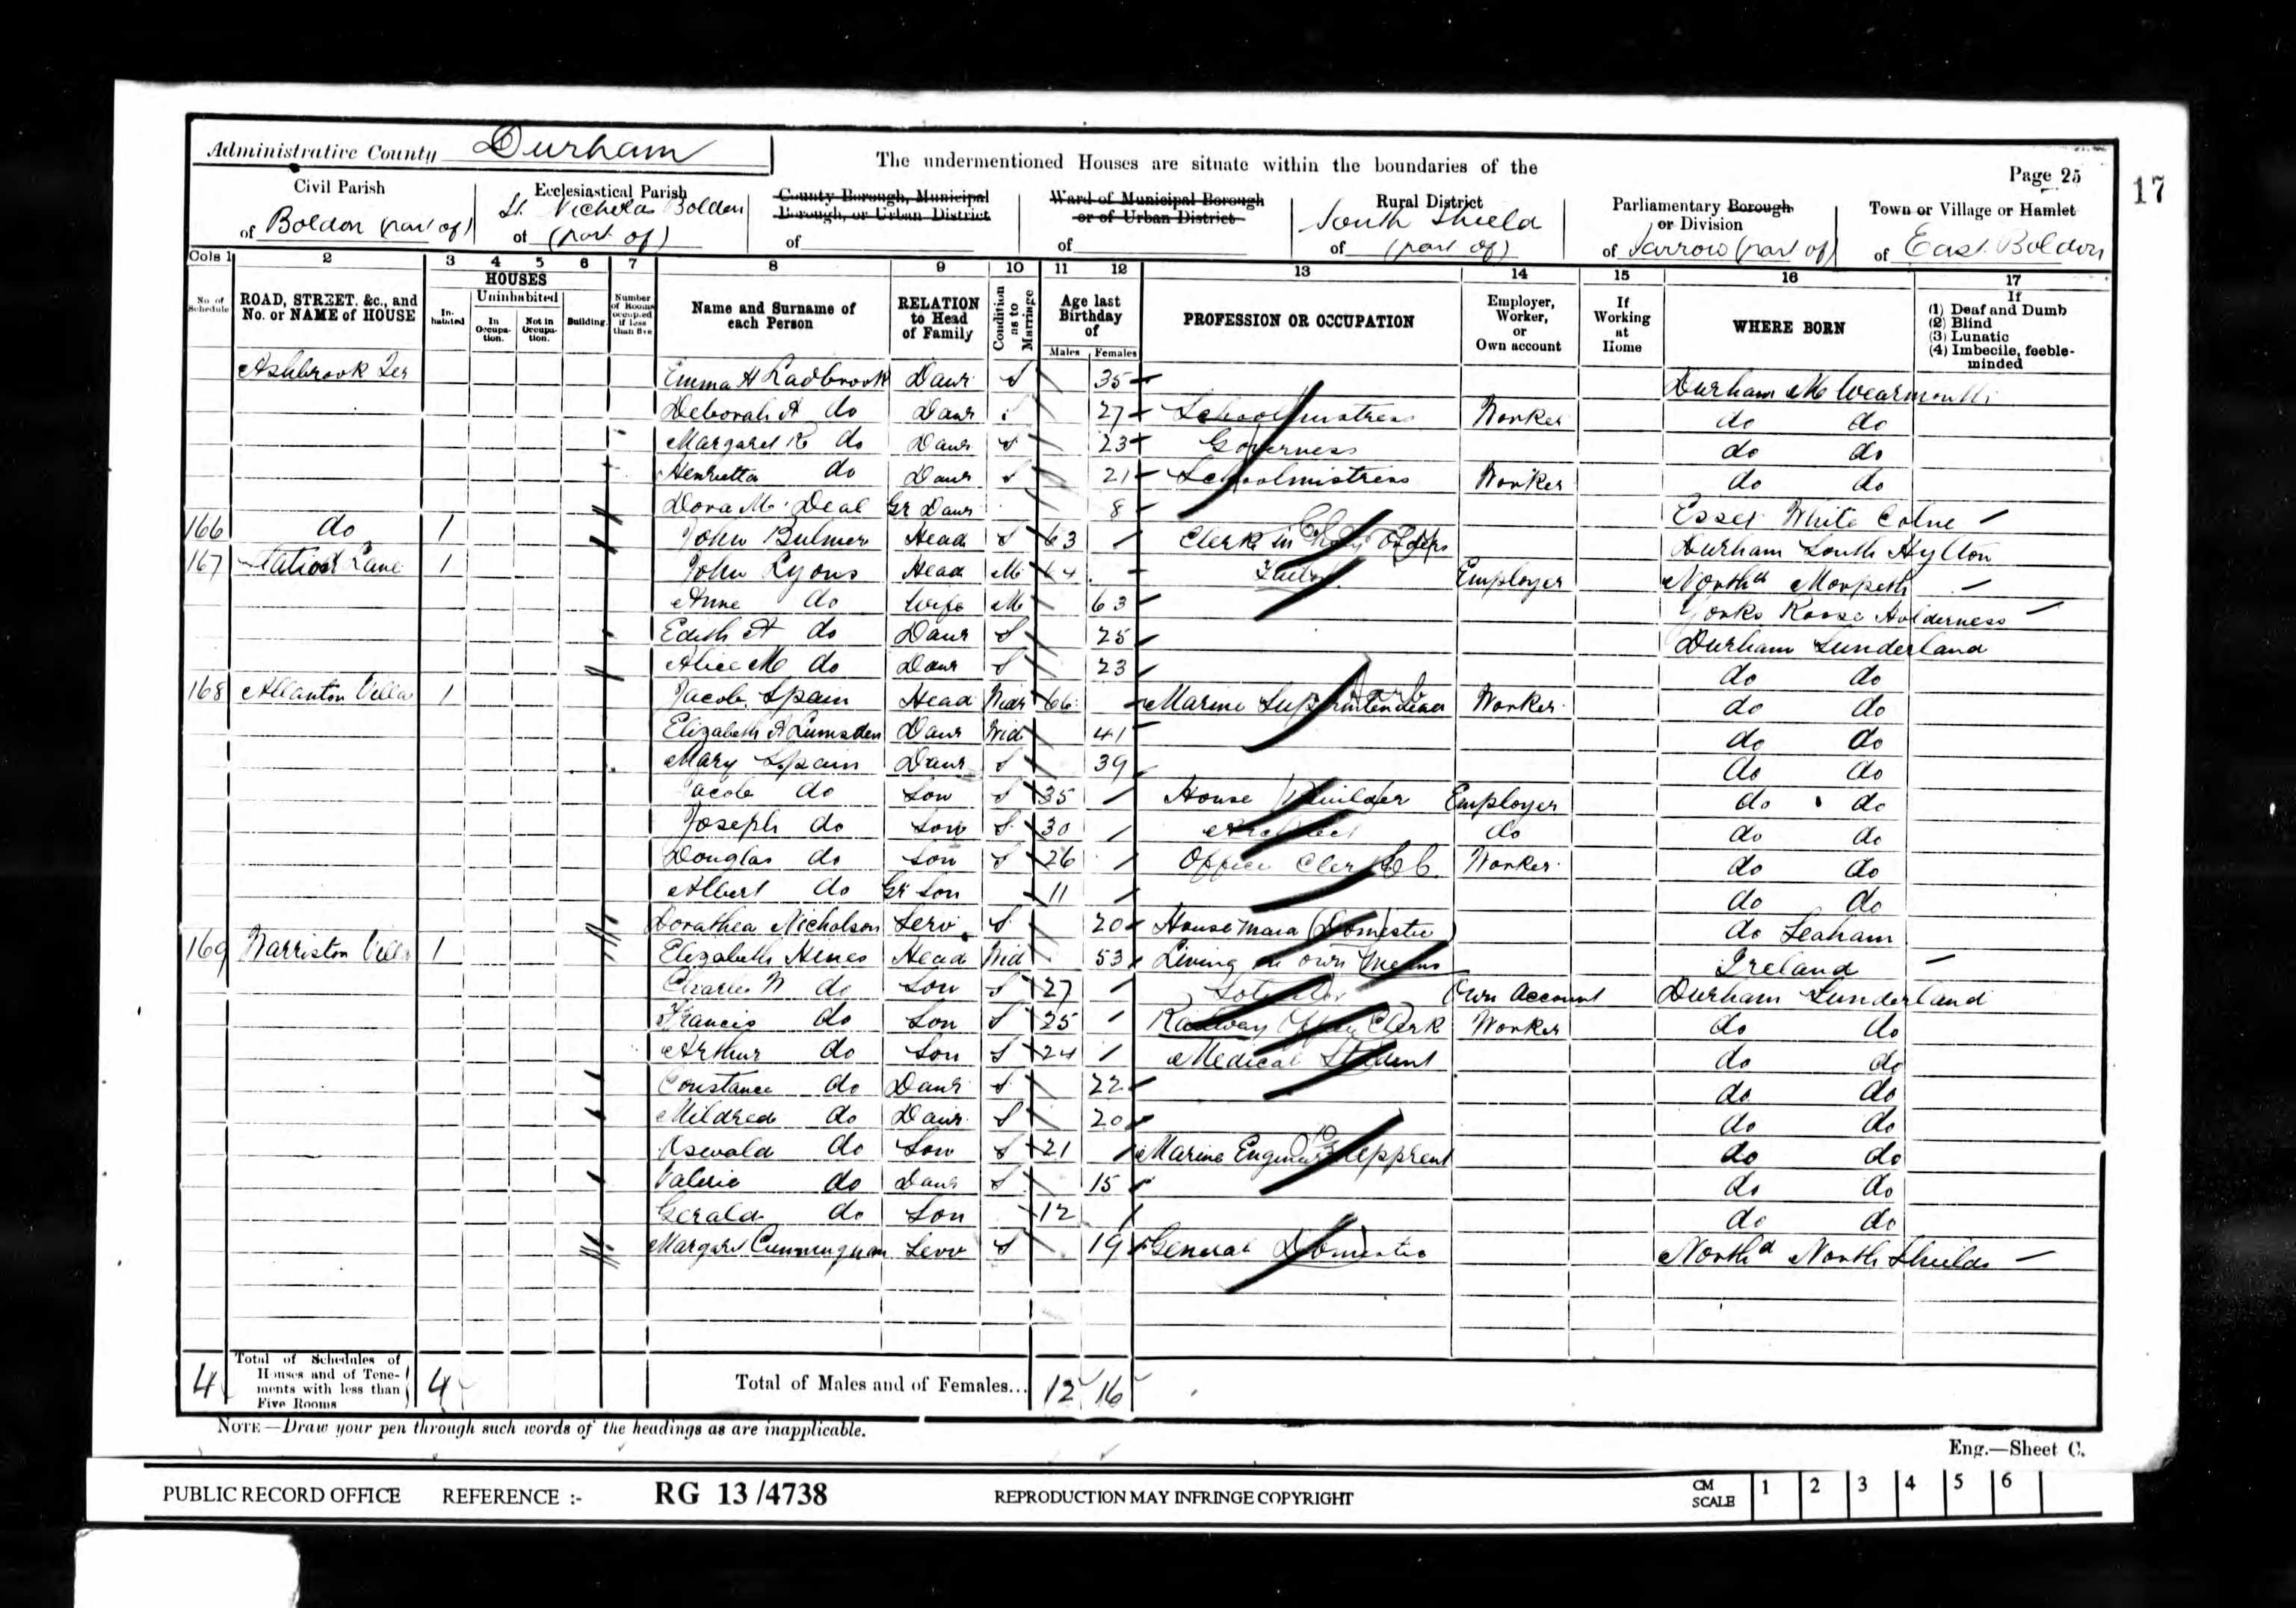 Administrative County Durham
The undermentioned Houses are situate within the boundaries of the
Page 25
17
Civil Parish
of Boldon (part of)
Ecclesiastical Parish
St. Nicholas Boldon
of (part of)
County Borough, Municipal
Borough, or Urban District
of
Ward of Municipal Borough
or of Urban District
of
Rural District
South Shield
of (part of)
Parliamentary Borough
or Division
of Jarrow (part of)
Town or Village or Hamlet
of East Boldon
Cols 1 2 3 4 5 6 7 8 9 10 11 12 13 14 15 16 17
No. of Schedule
ROAD, STREET, &c., and No. or NAME of HOUSE
HOUSES
In-habited
Uninhabited
In Occupa-tion.
Not in Occupa-tion.
Building.
Number of Rooms occupied if less than five
Name and Surname of each Person
RELATION to Head of Family
Condition as to Marriage
Age last Birthday of
Males Females
PROFESSION OR OCCUPATION
Employer, Worker, or Own account
If Working at Home
WHERE BORN
If
(1) Deaf and Dumb
(2) Blind
(3) Lunatic
(4) Imbecile, feeble-minded
Ashbrook Ter Emma A Ladbrook Daur S 35 Durham M Wearmouth
Deborah A do Daur S 27 Schoolmistress Worker do do
Margaret R do Daur S 23 Governess do do
Henrietta do Daur S 21 Schoolmistress Worker do do
Dora M Deal Gr Daur 8 Essex White Colne
166 do 1 John Bulmer Head S 63 Clerk in Durham South Hylton
167 Station Lane 1 John Lyons Head M 64 Tailor Employer Northd Morpeth
Anne do Wife M 63 Yorks Holderness
Edith A do Daur S 25 Durham Sunderland
Alice M do Daur S 23 do do
168 Allanton Villa 1 Jacob Spain Head Widr 66 Marine Superintendent Worker do do
Elizabeth A Lumsden Daur Wid 41 do do
Mary Spain Daur S 39 do do
Jacob do Son S 35 House Builder Employer do do
Joseph do Son S 30 Architect do do do
Douglas do Son S 26 Office Clerk Worker do do
Albert do Gr Son 11 do do
Dorathea Nicholson Serv S 20 House maid (Domestic) do Seaham
169 Warriston Villa 1 Elizabeth Hines Head Wid 53 Living on own Means Ireland
Charles W do Son S 27 Solicitor Own Account Durham Sunderland
Francis do Son S 25 Railway Office Clerk Worker do do
Arthur do Son S 24 Medical Student do do
Constance do Daur S 22 do do
Mildred do Daur S 20 do do
Oswald do Son S 21 Marine Engineer Apprent do do
Valerie do Daur S 15 do do
Gerald do Son 12 do do
Margart Cunningham Serv S 19 General Domestic Northd North Shields
4 Total of Schedules of Houses and of Tene-ments with less than Five Rooms 4 Total of Males and of Females... 12 16
NOTE—Draw your pen through such words of the headings as are inapplicable.
Eng.—Sheet C.
PUBLIC RECORD OFFICE REFERENCE :- RG 13/4738 REPRODUCTION MAY INFRINGE COPYRIGHT CM SCALE 1 2 3 4 5 6